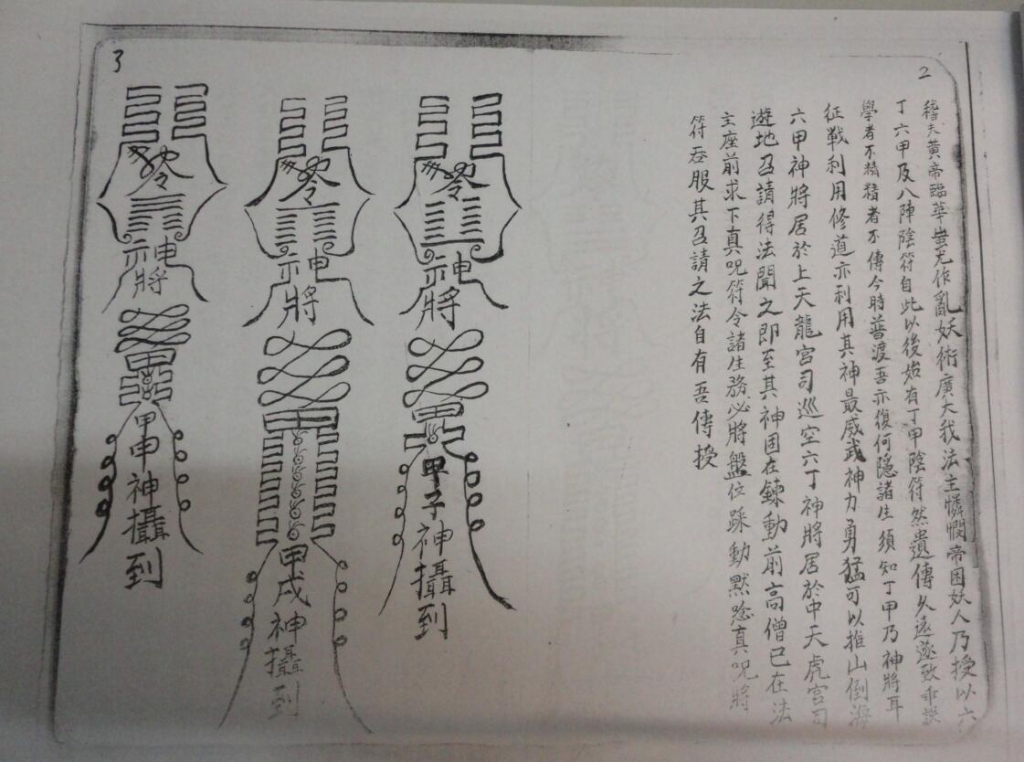 2
稽夫黃帝臨華蚩尤作亂妖術廣大我法主憐憫帝困妖人乃授以六
丁六甲及八陣陰符自此以後始有丁甲陰符然遺傳久遠遂致乖誤
學者不精精者不傳今時普渡吾亦復何隐諸生須知丁甲乃神將耳
征戰利用修道亦利用其神最威武神力勇猛可以推山倒海
六甲神將居於上天龍宮司巡空六丁神將居於中天虎宮司
遊地召請得法聞之即至其神固在鍊動前高僧已在法
主座前求下真呪符令諸生務必將盤位踩動默念真呪將
符吞服其召請之法自有吾傳授
神將
甲子神攝到
神將
甲戌神攝到
3
神將
甲申神攝到